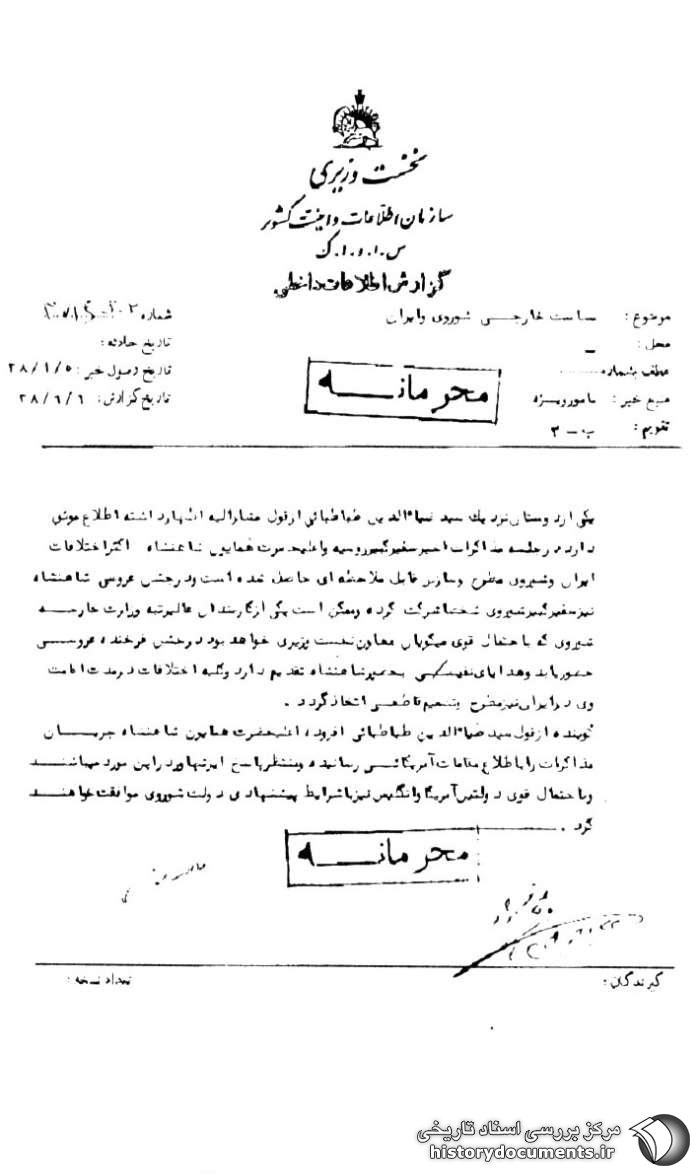 نخست وزیری
سازمان اطلاعات و امنیت کشور
س.ا.و.ا.ک
گزارش اطلاعات داخلی
موضوع : سیاست خارجی شوروی و ایران
شماره
محل : _
تاریخ حادثه :
عطف بشماره
تاریخ وصول خبر : ۲۸/۱/۵
منبع خبر : مامور ویژه
تاریخ گزارش :
تقویم : ب - ۳
محرمانه
یکی از دوستان نزدیک سید ضیاءالدین طباطبائی از قول مشارالیه اظهار داشته اطلاع موثق
دارد در جلسه مذاکرات اخیر سفیر کبیر روسیه و اعلیحضرت همایون شاهنشاه اکثر اختلافات
ایران و شوروی مطرح و سازش قابل ملاحظه ای حاصل شده است و در جشن عروسی شاهنشاه
نیز سفیر کبیر شوروی شخصا شرکت کرده و ممکن است یکی از کارمندان عالیرتبه وزارت خارجه
شوروی که با احتمال قوی میکویان معاون نخست وزیری خواهد بود در جشن فرخنده عروسی
حضور یابد و هدایای نفیسی به حضور شاهنشاه تقدیم دارد و کلیه اختلافات در مدت اقامت
وی در ایران نیز مطرح و تصمیم قاطعی اتخاذ گردد .
گوینده از قول سید ضیاءالدین طباطبائی افزود ، اعلیحضرت همایون شاهنشاه جریان
مذاکرات را باطلاع مقامات آمریکائی رسانیده و منتظر پاسخ ایزنهاور در این مورد میباشند
و با احتمال قوی دولتین آمریکا و انگلیس نیز با شرایط پیشنهادی دولت شوروی موافقت خواهند
کرد .
محرمانه
گیرندگان :
تعداد نسخه :
مرکز بررسی اسناد تاریخی
historydocuments.ir